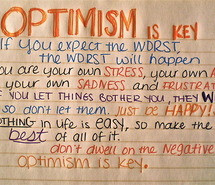 OPTIMISM is KEY
If you expect the WORST,
the WORST will happen
you are your own STRESS, your own
your own SADNESS and FRUSTRAT
IF YOU LET THINGS BOTHER YOU, THEY W
so don't let them. just be HAPPY!
NOTHING in life is EASY, so make the
best of all of it.
don't dwell on the Negative
optimism is key.